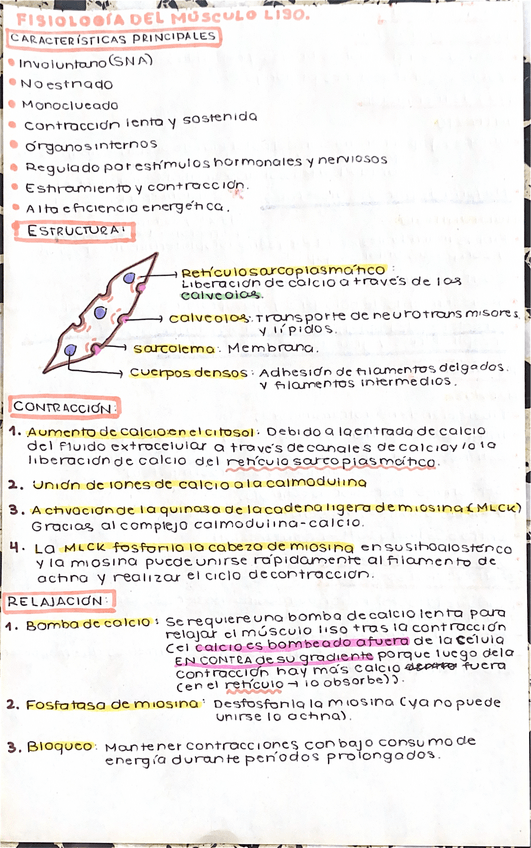 FISIOLOGÍA DEL MÚSCULO LISO.
CARACTERÍSTICAS PRINCIPALES
• Involuntario (SNA)
• No estriado
• Monoclueado
• Contracción lenta y sostenida
• órganos internos
• Regulado por estímulos hormonales y nerviosos
• Estiramiento y contracción.
• Alta eficiencia energética.
• ESTRUCTURA:
Retículo sarcoplasmático:
Liberación de calcio a través de las
calveolas.
calveolas: Transporte de neurotransmisores
y lípidos.
sarcolema: Membrana.
Cuerpos densos: Adhesión de filamentos delgados.
y filamentos intermedios.
CONTRACCIÓN:
1. Aumento de calcio en el citosol: Debido a la entrada de calcio
del fluido extracelular a través de canales de calcio y/o la
liberación de calcio del retículo sarcoplasmático.
2. Unión de iones de calcio a la calmodulina
3. Activación de la quinasa de la cadena ligera de miosina (MLCK)
Gracias al complejo calmodulina-calcio.
4. La MLCK fosforila la cabeza de miosina en su sitio alostérico
y la miosina puede unirse rápidamente al filamento de
actina y realizar el ciclo de contracción.
RELAJACIÓN:
1. Bomba de calcio: Se requiere una bomba de calcio lenta para
relajar el músculo liso tras la contracción
(el calcio es bombeado afuera de la célula
EN CONTRA de su gradiente porque luego de la
contracción hay más calcio dentro fuera
(en el retículo → lo absorbe)).
2. Fosfatasa de miosina: Desfosforila la miosina (ya no puede
unirse la actina).
3. Bloqueo: Mantener contracciones con bajo consumo de
energía durante períodos prolongados.